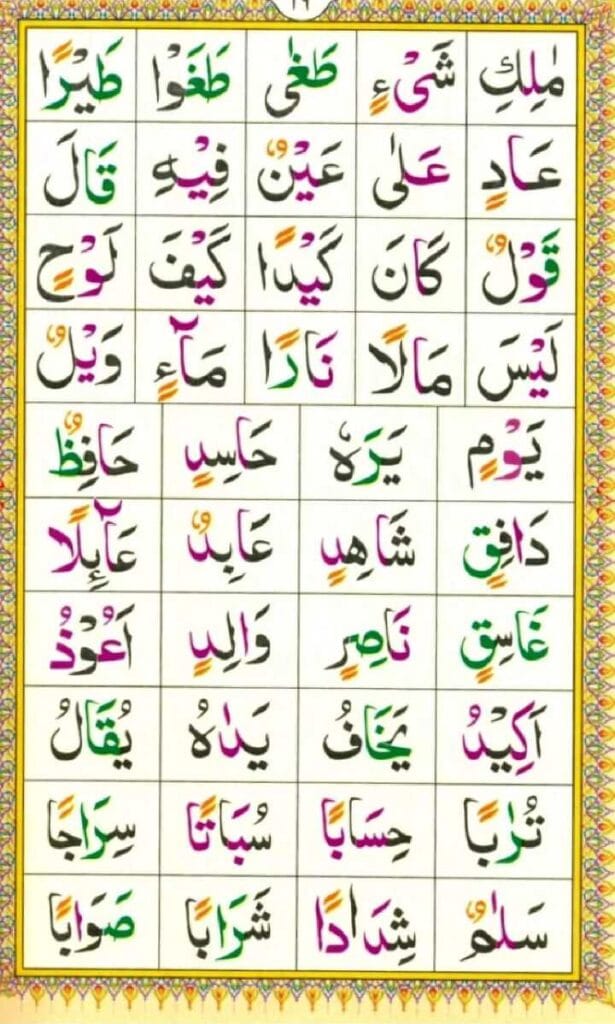 ١٦
مٰلِكِ شَیْءٍ طَغٰی طَغَوْا طَیْرًا
عَادٍ عَلٰی عَیْنٌ فِیْهِ قَالَ
قَوْلٌ كَانَ كَیْدًا كَیْفَ لَوْحٍ
لَیْسَ مَالًا نَارًا مَآءٍ وَیْلٌ
یَوْمٍ یَرَهٗ حَاسِدٍ حَافِظٌ
دَافِقٍ شَاهِدٍ عَابِدٌ عَآىِٕلًا
غَاسِقٍ نَاصِرٍ وَالِدٍ اَعُوْذُ
اَكِیْدُ یَخَافُ یَدٰهُ یُقَالُ
تُرٰبًا حِسَابًا سُبَاتًا سِرَاجًا
سَلٰمٌ شِدَادًا شَرَابًا صَوَابًا